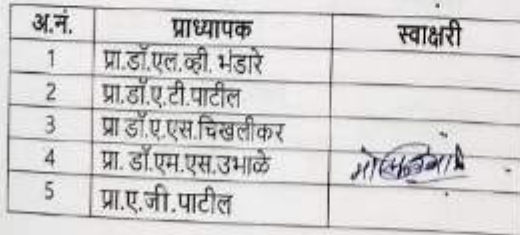 अ.नं. प्राध्यापक स्वाक्षरी
1 प्रा.डॉ.एल.व्ही. भंडारे
2 प्रा.डॉ.ए.टी.पाटील
3 प्रा डॉ.ए.एस.चिखलीकर
4 प्रा. डॉ.एम.एस.उभाळे
5 प्रा.ए.जी.पाटील